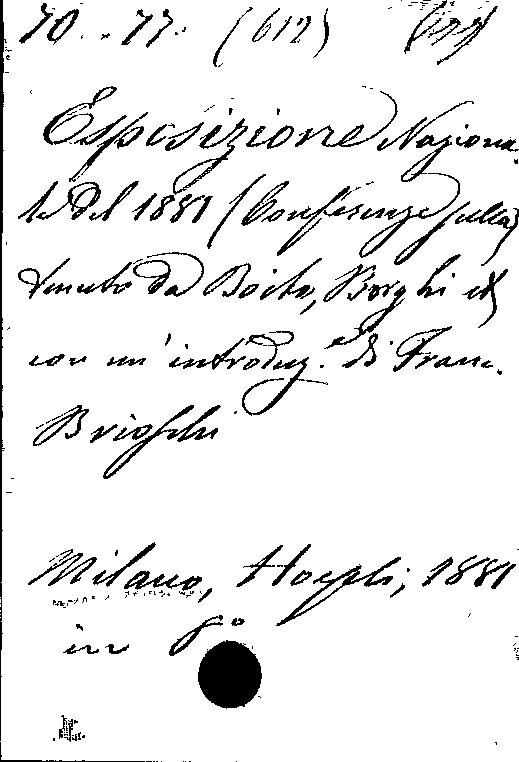 70. . 77. (612)
Esposizione Naziona
le del 1881 (Conferenze sulla)
tenute da Boito, Borghi ed
con un' introduz.e di Franc.
Brioschi
Milano, Hoepli; 1881
in 8o